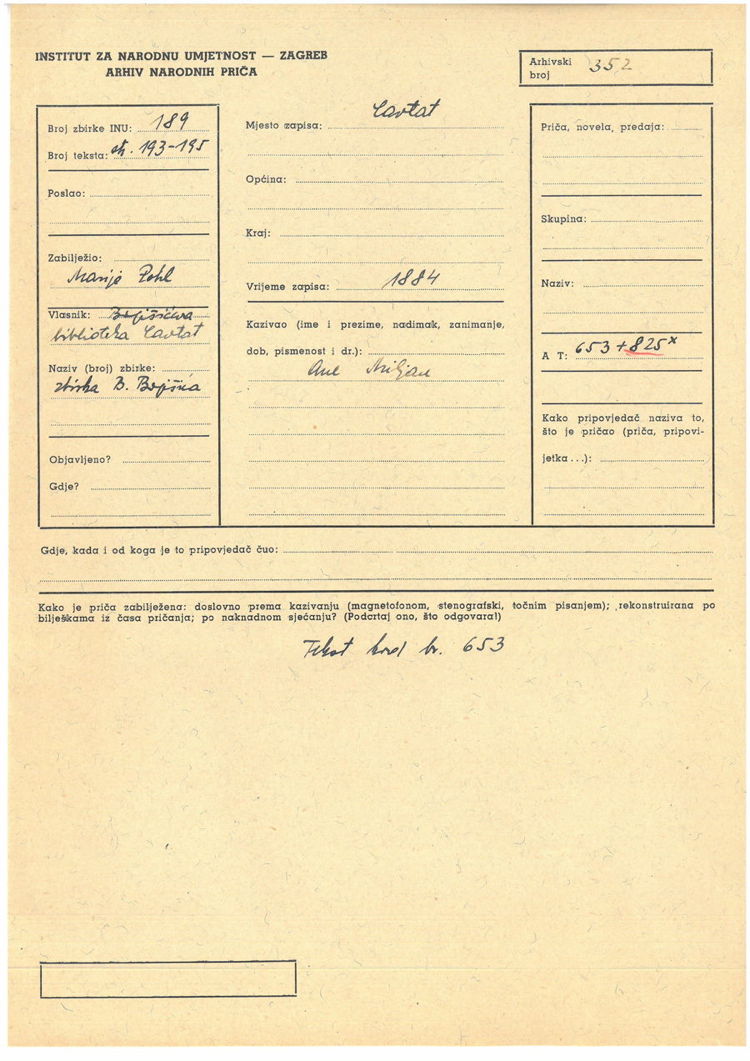 INSTITUT ZA NARODNU UMJETNOST — ZAGREB
ARHIV NARODNIH PRIČA
Arhivski
broj 352
Broj zbirke INU: 189
Broj teksta: str. 193-195
Poslao:
Zabilježio:
Marija Pohl
Vlasnik: Bogišićeva
biblioteka Cavtat
Naziv (broj) zbirke:
zbirka B. Bogišića
Objavljeno?
Gdje?
Mjesto zapisa: Cavtat
Općina:
Kraj:
Vrijeme zapisa: 1884
Kazivao (ime i prezime, nadimak, zanimanje,
dob, pismenost i dr.):
Ane Miljan
Priča, novela, predaja:
Skupina:
Naziv:
A T: 653 + 825x
Kako pripovjedač naziva to,
što je pričao (priča, pripovi-
jetka...):
Gdje, kada i od koga je to pripovjedač čuo:
Kako je priča zabilježena: doslovno prema kazivanju (magnetofonom, stenografski, točnim pisanjem); rekonstruirana po
bilješkama iz časa pričanja; po naknadnom sjećanju? (Podcrtaj ono, što odgovara!)
Tekst kod br. 653